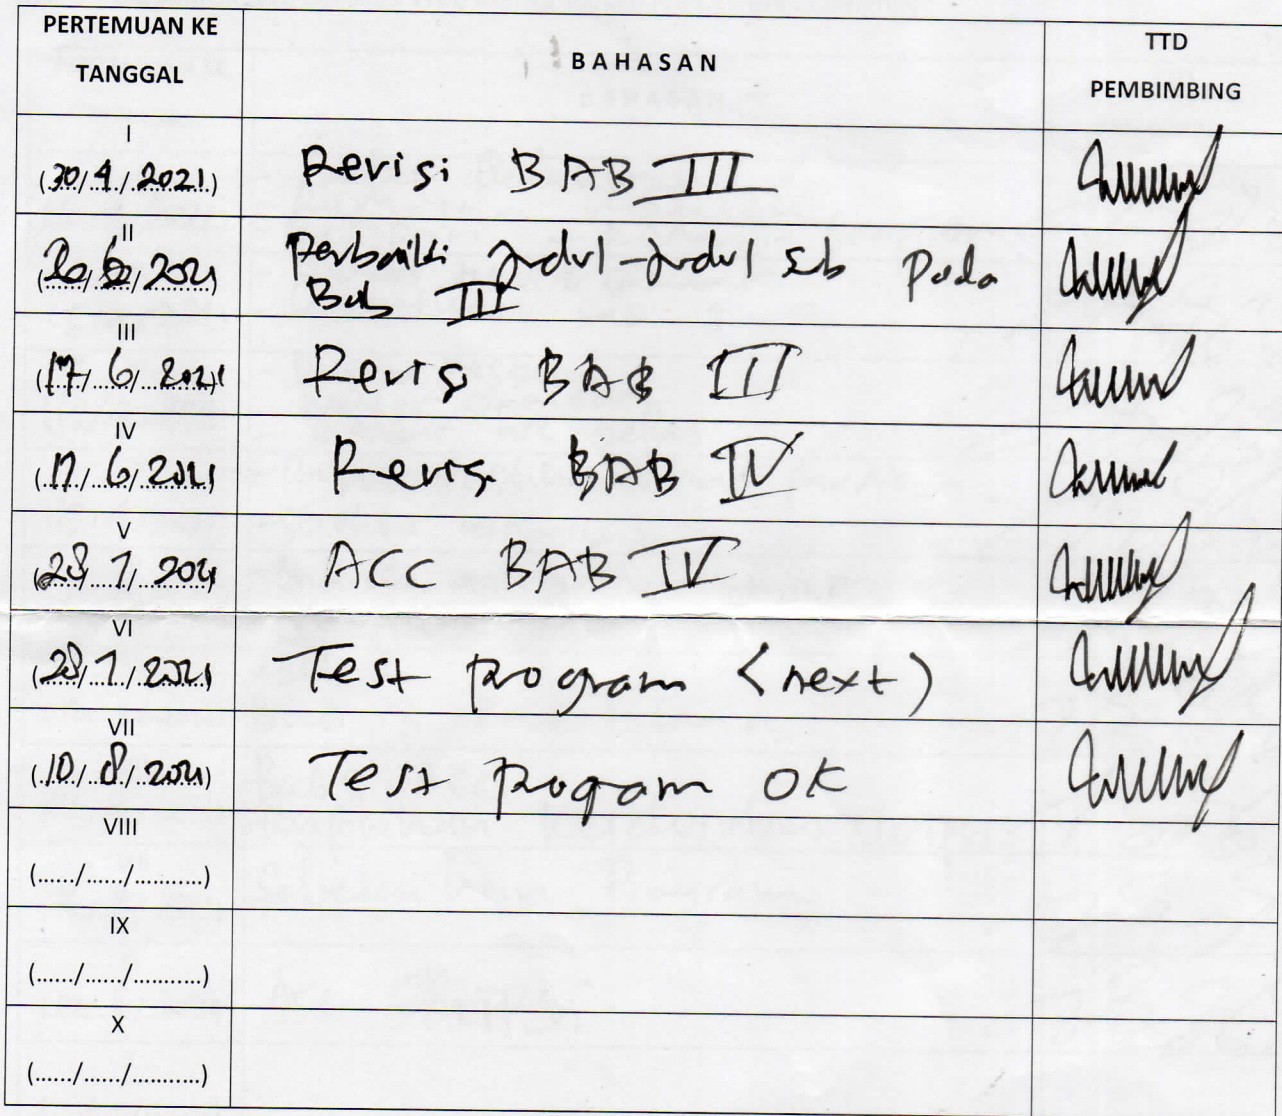 PERTEMUAN KE
TANGGAL
BAHASAN
TTD
PEMBIMBING
I
(30/4/2021)
Revisi BAB III
II
2021
Perbaiki Judul-Judul Sub Pada
Bab III
III
(17/6/2021
Revisi BAB III
IV
(17/6/2021)
Revisi BAB IV
V
28/7/2021
ACC BAB IV
VI
(28/7/2021)
Test program (next)
VII
(10/8/2021)
Test Program OK
VIII
(....../....../...........)
IX
(....../....../...........)
X
(....../....../...........)